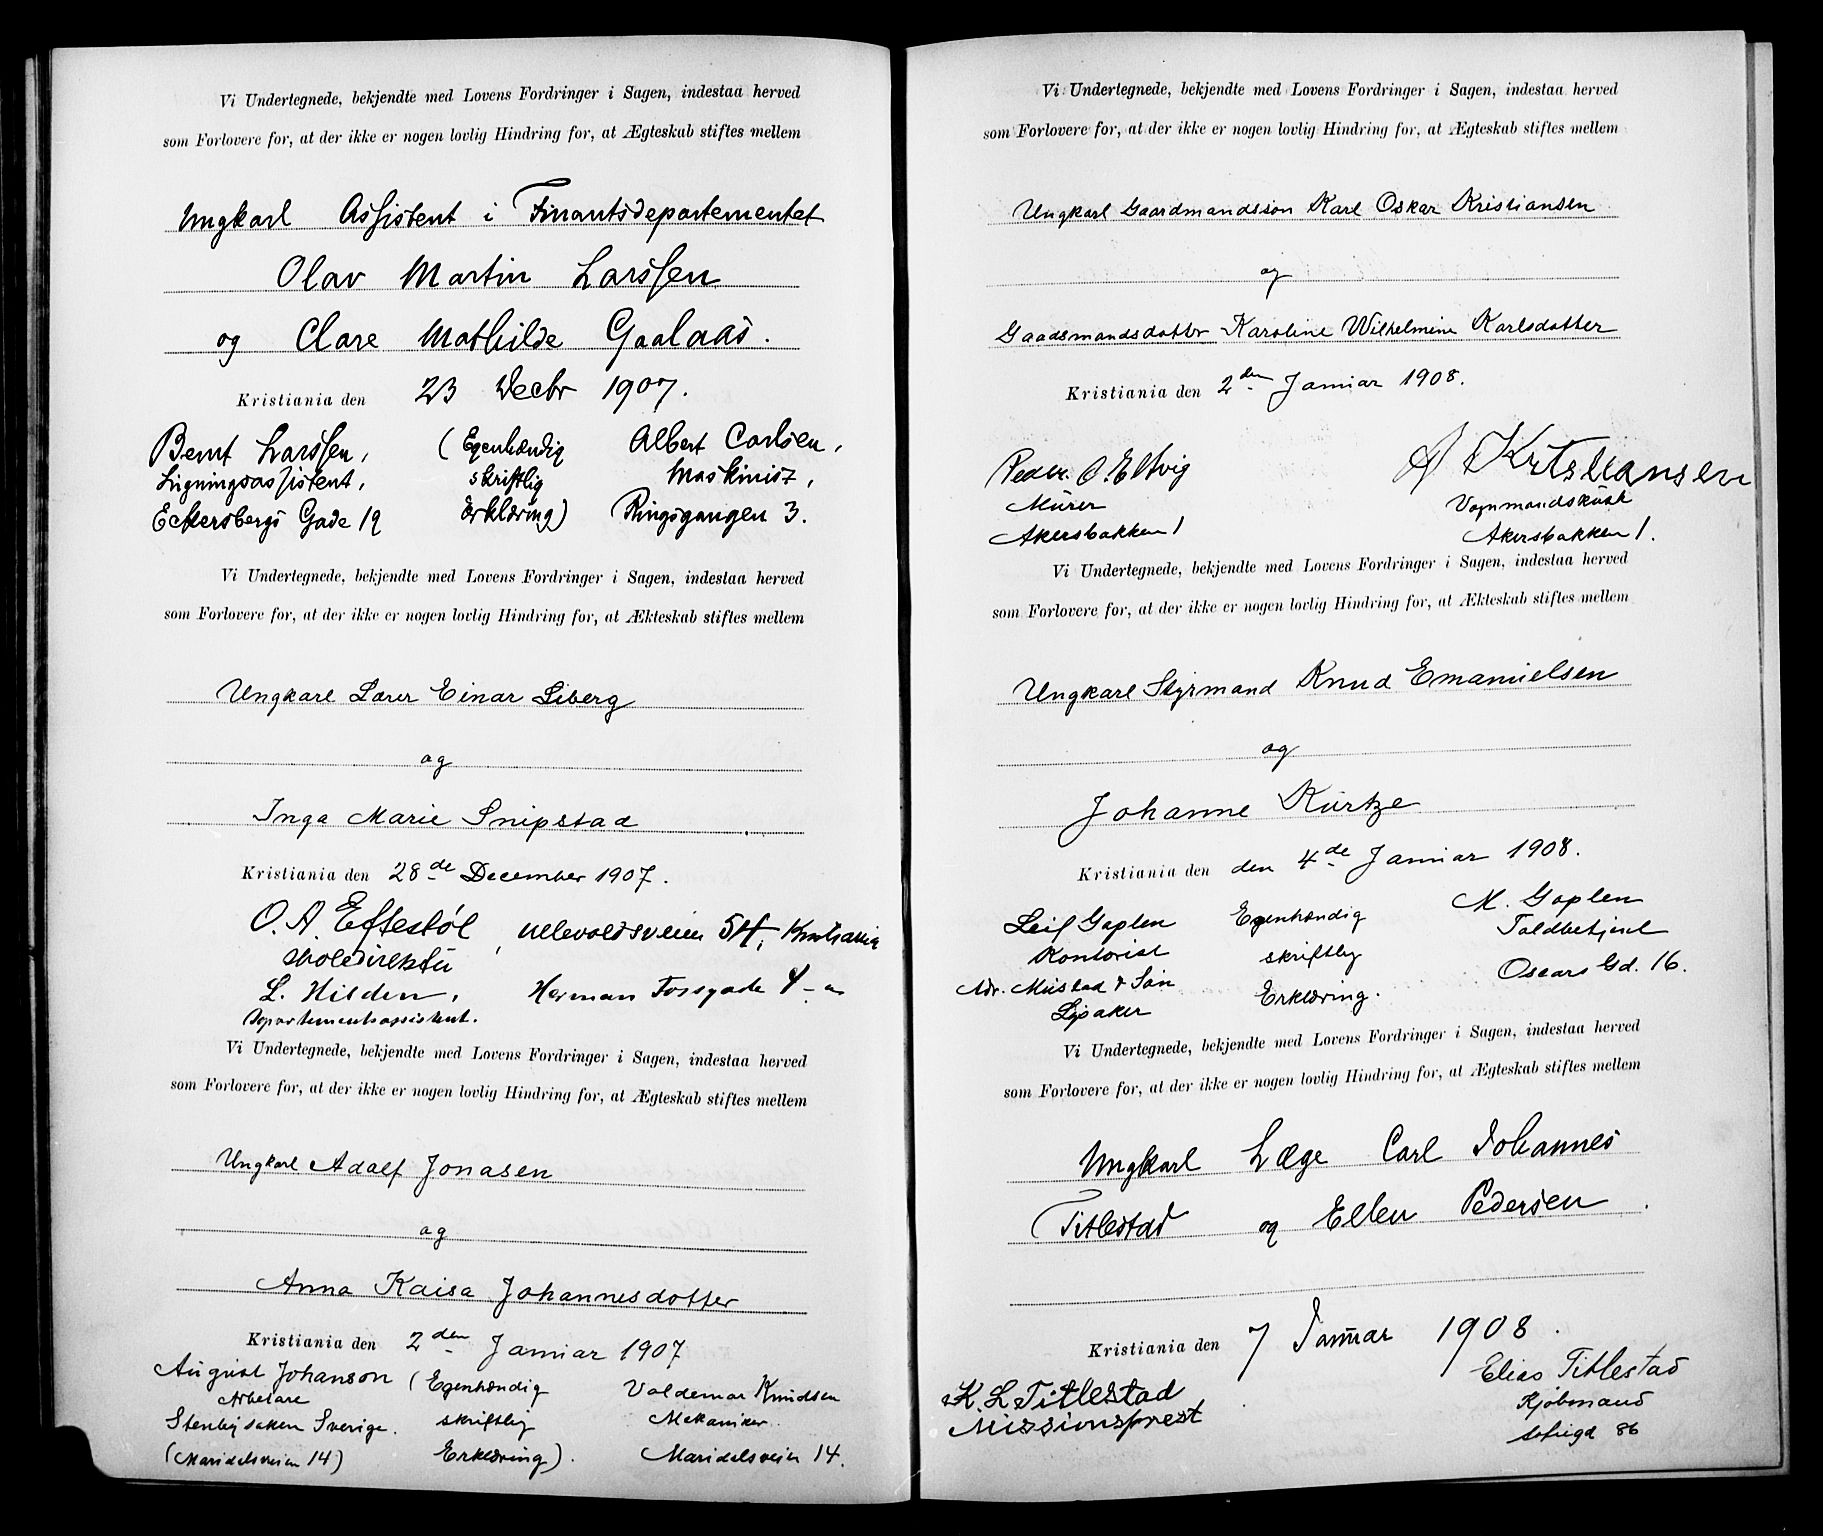 Vi Undertegnede, bekjendte med Lovens Fordringer i Sagen, indestaa herved
som Forlovere for, at der ikke er nogen lovlig Hindring for, at Ægteskab stiftes mellem
Ungkarl Assistent i Finantsdepartementet
Olav Martin Larssen
og Clare Mathilde Gaalaas.
Kristiania den 23 Decbr 1907.
Bernt Larssen, (Egenhændig Albert Carlsen,
Ligningsassistent, skriftlig Maskinist,
Eckersbergs Gade 19 Erklæring) Ringsgangen 3.
Vi Undertegnede, bekjendte med Lovens Fordringer i Sagen, indestaa herved
som Forlovere for, at der ikke er nogen lovlig Hindring for, at Ækteskab stiftes mellem
Ungkarl Lærer Einar Liberg
og
Inga Marie Snipstad
Kristiania den 28de December 1907.
O. A. Eftestøl, Ullevoldsveien 54, Kristiania
skoledirektør
L. Hilden, Herman Fossgade 4
Departementsassistent.
Vi Undertegnede, bekjendte med Lovens Fordringer i Sagen, indestaa herved
som Forlovere for, at der ikke er nogen lovlig Hindring for, at Ægteskab stiftes mellem
Ungkarl Adolf Jonasen
og
Anna Kaisa Johannesdotter
Kristiania den 2den Januar 1907
August Johanson (Egenhændig Valdemar Knudsen
Arbetare skriftlig Mekaniker.
Sverige. Erklæring).
(Maridalsveien 14) Maridalsveien 14.
Vi Undertegnede, bekjendte med Lovens Fordringer i Sagen, indestaa herved
som Forlovere for, at der ikke er nogen lovlig Hindring for, at Ægteskab stiftes mellem
Ungkarl Gaardmandssøn Karl Oskar Kristiansen
og
Gaadsmandsdotter Karoline Wilhelmine Karlsdotter
Kristiania den 2den Januar 1908.
Peder. O. Eltvig A Kristiansen
Murer Vognmandskusk
Akersbakken 1 Akersbakken 1.
Vi Undertegnede, bekjendte med Lovens Fordringer i Sagen, indestaa herved
som Forlovere for, at der ikke er nogen lovlig Hindring for, at Ækteskab stiftes mellem
Ungkarl Styrmand Knud Emanuelsen
og
Johanne Kurtze
Kristiania den den 4de Januar 1908.
Leif Goplen Egenhændig M. Goplen
Kontorist skriftlig Toldbetjent
Adr. Mustad & Søn Erklæring. Oscars Gd. 16.
Lysaker
Vi Undertegnede, bekjendte med Lovens Fordringer i Sagen, indestaa herved
som Forlovere for, at der ikke er nogen lovlig Hindring for, at Ægteskab stiftes mellem
Ungkarl Læge Carl Johannes
Titlestad og Ellen Pedersen.
Kristiania den 7 Januar 1908.
K. L. Titlestad Elias Titlestad
Missionsprest Kjøbmand
Sofiegd 86